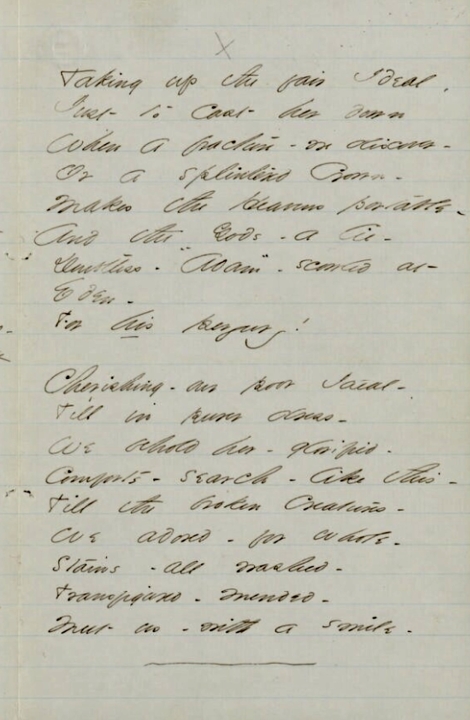 X
Taking up the fair Ideal,
Just to cast her down
When a fracture - we discover -
Or a splintered Crown -
Makes the Heavens portable -
And the Gods - a lie -
Doubtless - "Adam" - scowled at
Eden -
For his perjury!
Cherishing - our poor Ideal -
Till in purer dress -
We behold her - glorified -
Comforts - search - like this -
Till the broken creatures -
We adored - for whole -
Stains - all washed -
Transfigured - mended -
Meet us - with a smile -